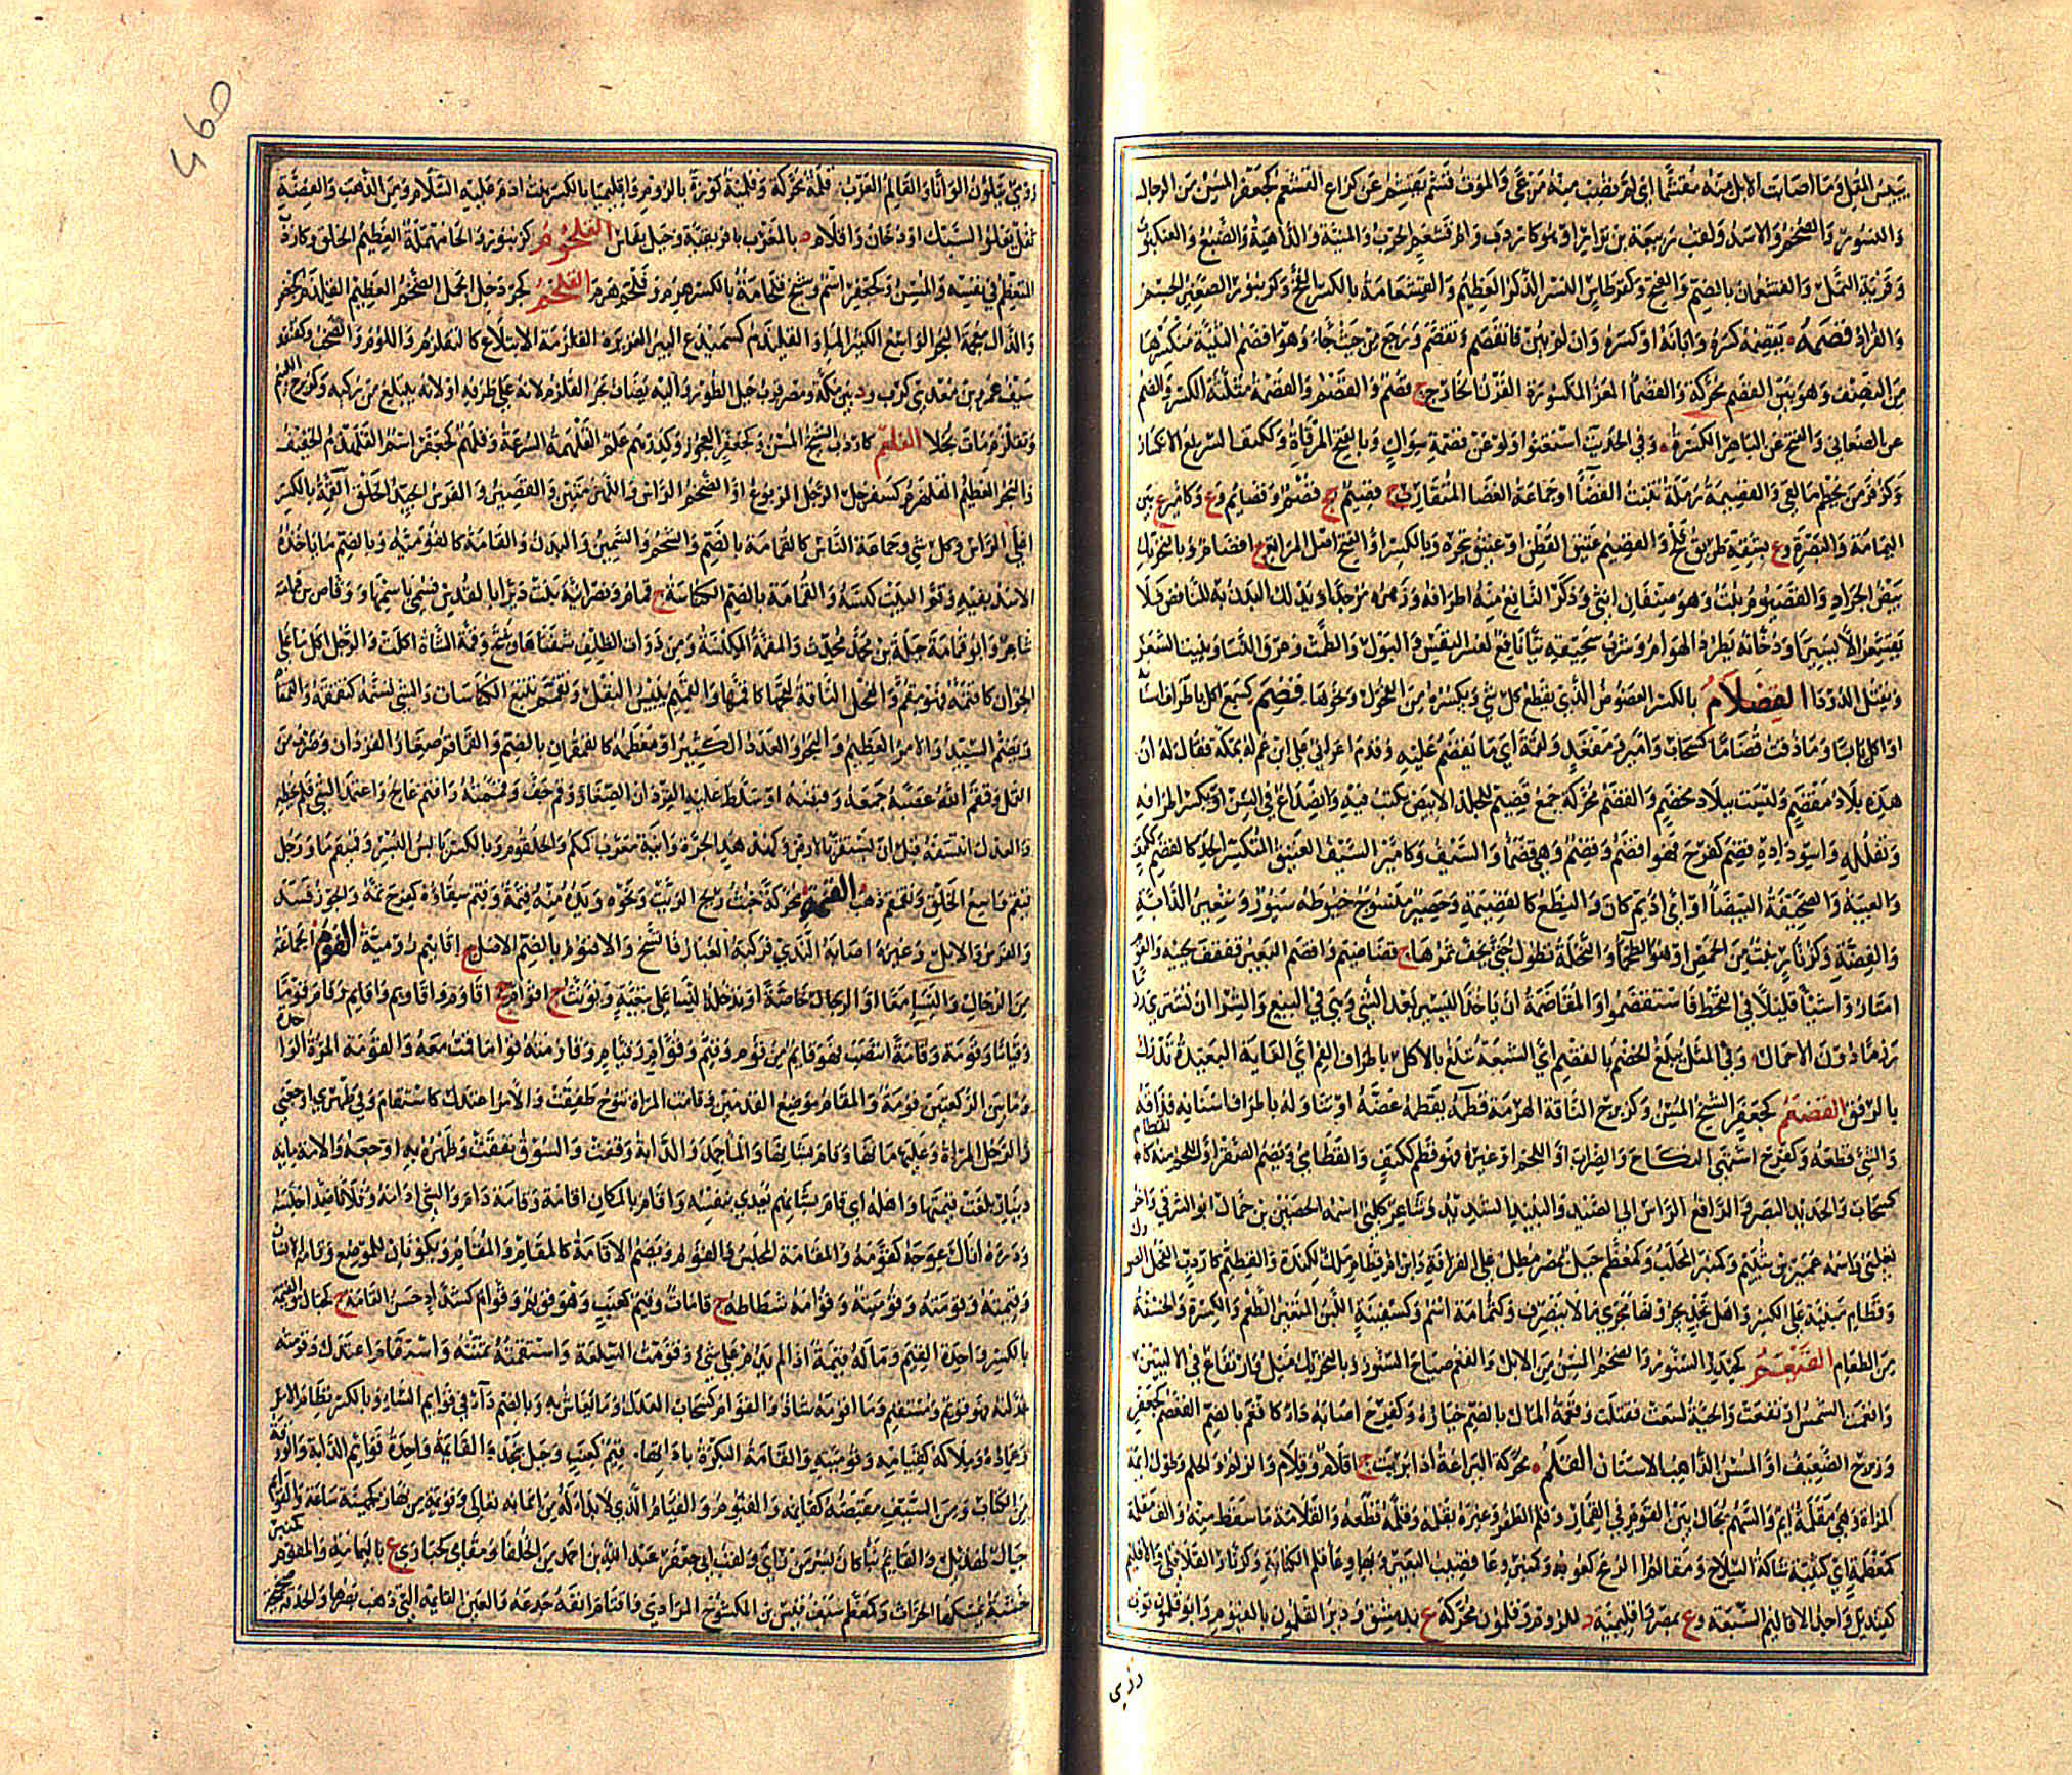 يبيس البقل وما اصابت الابل منه مقشما اي لم تصب منه مرعى والموت قشم يقشم عن كراع القشعم كجعفر المسن من الرجال
والنسور والضخم والاسد ولقب ربيعة بن نزار وام قشعم الحرب والمنية والداهية والضبع والعنكبوت
وقرية النمل والقشعمان بالضم والفتح وكقرطاس النسر الذكر العظيم والقشعامة بالكسر وكزنبور الصغير الجسم
والقراد قصمه يقصمه كسره وابانه او كسره وان لم يبن فانقصم وتقصم ورجع من حيث جاء وهو اقصم الثنية منكسرها
من النصف وهو بين القصم محركة والقصما المعز المكسورة القرن الخارج ج قصم والقصم والقصمة مثلثة الكسرة والضم
عن الصغاني والفتح عن الباهر الكسرة وفي الحديث استغنوا ولو عن قصمة سواك وبالفتح المرقاة
وكزفر من يحطم ما لقي والقصيمة رملة تنبت الغضا او جماعة الغضا المتقارب ج قصيم جج قصم وقصائم وع بين
اليمامة والبصرة وع بشقه طريق فلج والقصيم عتيق القطن او عتيق شجره وبالكسر او الفتح اصل المراتع ج اقصام وبالتحريك
بيض الجراد والقيصوم نبت وهو صنفان انثى وذكر النافع منه اطرافه وزهره مر جدا ويدلك البدن به للنافض فلا
يقشعر الا يسيرا ودخانه يطرد الهوام وشرب سحيقه نيا نافع لعسر النفس والبول والطمث وعرق النسا وينبت الشعر
ويقتل الدود القصلام بالكسر العضوض الذي يقطع كل شي ويكسره من الفحول ونحوها قضم كسمع اكل باطراف اسنانه
او اكل يابسا وما ذقت قضاما كسحاب وامير ومقعد ولقمة اي ما يقضم عليه وقدم اعرابي على ابن عم له بمكة فقال له ان
هذه بلاد مقضم وليست ببلاد مخضم والقضم محركة جمع قضيم للجلد الابيض يكتب فيه وانصداع في السن او تكسر اطرافه
وتفلله واسوداده قضم كفرح فهو اقضم وقضم وهي قضما والسيف وكامير السيف العتيق المتكسر الحد كالقضم ككتف
والعيبة والصحيفة البيضا او اي اديم كان والنطع كالقضيمة وحصير منسوج خيوطه سيور وشعير الدابة
والفضة وكزنار نبت من الحمض او هو الطحما والنخلة تطول حتى يخف ثمرها ج قضاضيم واقضم البعير قفقف لحييه والقوم
امتاروا شيا قليلا في القحط فاستقضموا والمقاضمة ان ياخذ اليسير بعد الشي وهي في البيع والشرا ان تشتري
رزما دون الاحمال وفي المثل يبلغ الخضم بالقضم اي الشبعة تبلغ بالاكل باطراف الفم اي الغاية البعيدة تدرك
بالرفق القضعم كجعفر الشيخ المسن وكزبرج الناقة الهرمة قطمه يقطمه عضه او تناوله باطراف اسنانه فذاقه
والشي قطعه وكفرح اشتهى النكاح والضراب او اللحم او غيره فهو قطم ككتف والقطامي ويضم الصقر او اللحم منه كالقطام
كسحاب والحديد البصر والرافع الراس الى الصيد والنبيذ الشديد وشاعر كلبي اسمه الحصين بن جمال ابو الشرقي واخر
تغلبي واسمه عمير بن شييم وكمنبر المخلب وكمعظم جبل بمصر مطل على القرافة وابن ام قطام ملك لكندة والقطيم كاردب الفحل الصؤول
وقطام مبنية على الكسر واهل نجد يجرونها مجرى ما لا ينصرف وكثمامة اسم وكسفينة اللبن المتغير الطعم والكسرة والحسوة
من الطعام القيعم كحيدر السنور والضخم المسن من الابل والقعم صياح السنور وبالتحريك ميل وارتفاع في الاليتين
واقعمت الشمس ارتفعت والحية لسعت فقتلت وقعمة المال بالضم خياره وكفرح اصابه داء كاقعم بالضم القعضم كجعفر
وزبرج الضعيف او المسن الذاهب الاسنان القلم محركة اليراعة او اذا بريت ج اقلام وقلام والزلم والجلم وطول ايمة
المراة وهي مقلمة ايم والسهم يجال بين القوم في القمار وقلم الظفر وغيره يقلمه وقلمه قطعه والقلامة ما سقط منه والف مقلمة
كمعظمة اي كتيبة شاكة السلاح ومقالم الرمح كعوبه وكمنبر وعا قضيب البعير وبها وعا قلم الكتابة وكزنار القاقلى والاقليم
كقنديل واحد الاقاليم السبعة وع بمصر واقليمية د للروم وقلمون محركة ع بدمشق ودير القلمون بالفيوم وابو قلمون ثوب
رومي
رومي يتلون الوانا والقالم العزب قلمة محركة وقلمية كورة بالروم واقليميا بالكسر بنت ادم عليه السلام ومن الذهب والفضة
ثفل يعلو السبك او دخان واقلام د بالمغرب بافريقية وجبل بفاس القلحم كزنبور والحا مهملة العظيم الخلق وكاردب
المتعظم في نفسه والمسن وكجعفر اسم وشيخ قلحامة بالكسر هرم وقلحم هرم القلخم كجردحل الجمل الضخم العظيم القليذم كسميدع
والذال معجمة البحر الواسع الكثير الما القليذم كسميدع البير الغزيرة القلزمة الابتلاع كالتقلزم واللؤم والصخب وكقنفذ
سيف عمرو بن معدي كرب ود بين مكة ومصر قرب جبل الطور واليه يضاف بحر القلزم لانه على طرفه او لانه يبتلع من ركبه وكزبرج اللئيم
وتقلزم مات بخلا القلعم كاردب الشيخ المسن وكجعفر العجوز وكدرهم علم القلهمة السرعة وقلهم كجعفر اسم القلهذم الخفيف
والبحر العظيم القلهزم كسفرجل الرجل المربوع او الضخم الراس واللهزمتين والقصير والفرس الجيد الخلق القمة بالكسر
اعلى الراس وكل شي وجماعة الناس كالقمامة بالضم والشحم والسمن والبدن والقامة كالقومية وبالضم ما ياخذه
الاسد بفيه وقم البيت كنسه والقمامة بالضم الكناسة ج قمام ونصرانية بنت ديرا بالقدس فسمي باسمها ووقاص بن قمامة
شاعر وابو قمامة جبلة بن محمد محدث والمقمة المكنسة ومن ذوات الظلف شفتاها ويفتح وقمت الشاة اكلت والرجل اكل ما على
الخوان كاقتمه فهو مقم والفحل الناقة القحها كاقمها والقميم يبيس البقل وتقمم تتبع الكناسات والشي تسنمه كقمقمه والقمقام
ويضم السيد والامر العظيم والبحر والعدد الكثير او معظمه كالقمقمان بالضم والقماقم صغار القردان وضرب من
القمل وقمقم الله عصبه جمعه وقبضه او سلط عليه القردان الصغار وقم جف وقممته واقتم عالج واعتمد الشي فلم يخطه
والعدل انتسفه قبل ان يستقر بالارض وكهدهد الجرة وانية معرب كمكم والحلقوم وبالكسر يابس البسر وقيقم ما ورجل
قيقم واسع الحلق وتقمم ذهب القنمة محركة خبث ريح الزيت ونحوه ويده منه قنمة وقنم سقاؤه كفرح تمه والجوز فسد
والفرس والابل وغيره اصابه الندى فركبه الغبار فاتسخ والاقنوم بالضم الاصل ج اقانيم رومية القوم الجماعة
من الرجال والنسا معا او الرجال خاصة او تدخله النسا على تبعية وتؤنث ج اقوام جج اقاوم واقاويم واقايم وقام قوما
وقياما وقومة وقامة انتصب فهو قائم من قوم وقيم وقوام وقيام وقاومته قواما قمت معه والقومة المرة الواحدة
وما بين الركعتين قومة والمقام موضع القدمين وقامت المراة تنوح طفقت والامر اعتدل كاستقام وفي ظهري اوجعني
والرجل المراة وعليها مانها وقام بشانها والما جمد والدابة وقفت والسوق نفقت وظهره به اوجعه والامة ماية
دينار بلغت قيمتها واهله اي قام بشانهم يعدي بنفسه واقام بالمكان اقامة وقامة دام والشي ادامه وفلانا ضد اجلسه
ودره ازال عوجه كقومه والمقامة المجلس والقوم وبضم الاقامة كالمقام والمقام ويكونان للموضع وقامة الانسان
وقيمته وقومته وقوميته وقوامه شطاطه ج قامات وقيم كعنب وهو قويم وقوام كشداد حسن القامة ج كجبال والقيمة
بالكسر واحدة القيم وما له قيمة اذا لم يدم على شي وقومت السلعة واستقمته ثمنته واستقام اعتدل وقومته
عدلته فهو قويم ومستقيم وما اقومه شاذ والقوام كسحاب العدل وما يعاش به وبالضم داء في قوائم الشاء وبالكسر نظام الامر
وعماده وملاكه كقيامه وقوميته والقامة البكرة باداتها ج قيم كعنب وجبل بنجد والقائمة واحدة قوائم الدابة والورقة
من الكتاب ومن السيف مقبضه كقائمه والقيوم والقيام الذي لا بد له من اسمائه تعالى وقويمة من نهار كجهينة ساعة والقوائم
جبال لهذيل والقائم بنا كان بسر من راى ولقب ابي جعفر عبد الله بن احمد من الخلفا ومقامى كحبارى ع باليمامة والمقوم كمنبر
خشبة يمسكها الحراث وكمعظم سيف قيس بن المكشوح المرادي واقتام انفه جدعه والعين القائمة التي ذهب بصرها والحدقة صحيحة
460